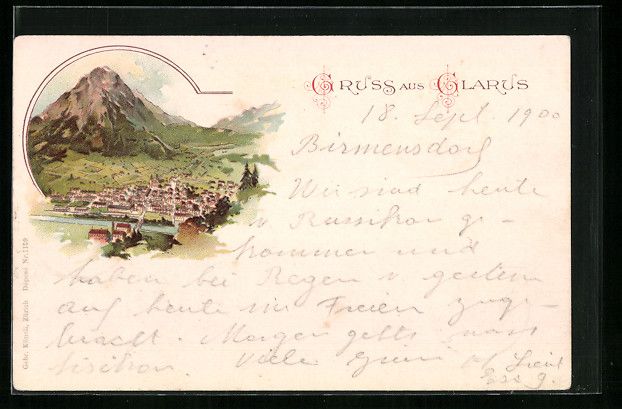 GRUSS AUS GLARUS
18. Sept. 1900
Birmensdorf
Wir sind heute
v. Russikon ge-
kommen und
haben bei Regen v. gestern
auf heute im Freien zuge-
bracht. Morgen gehts nach
Viele
Gebr. Künzli, Zürich Deposé Nr. 1159